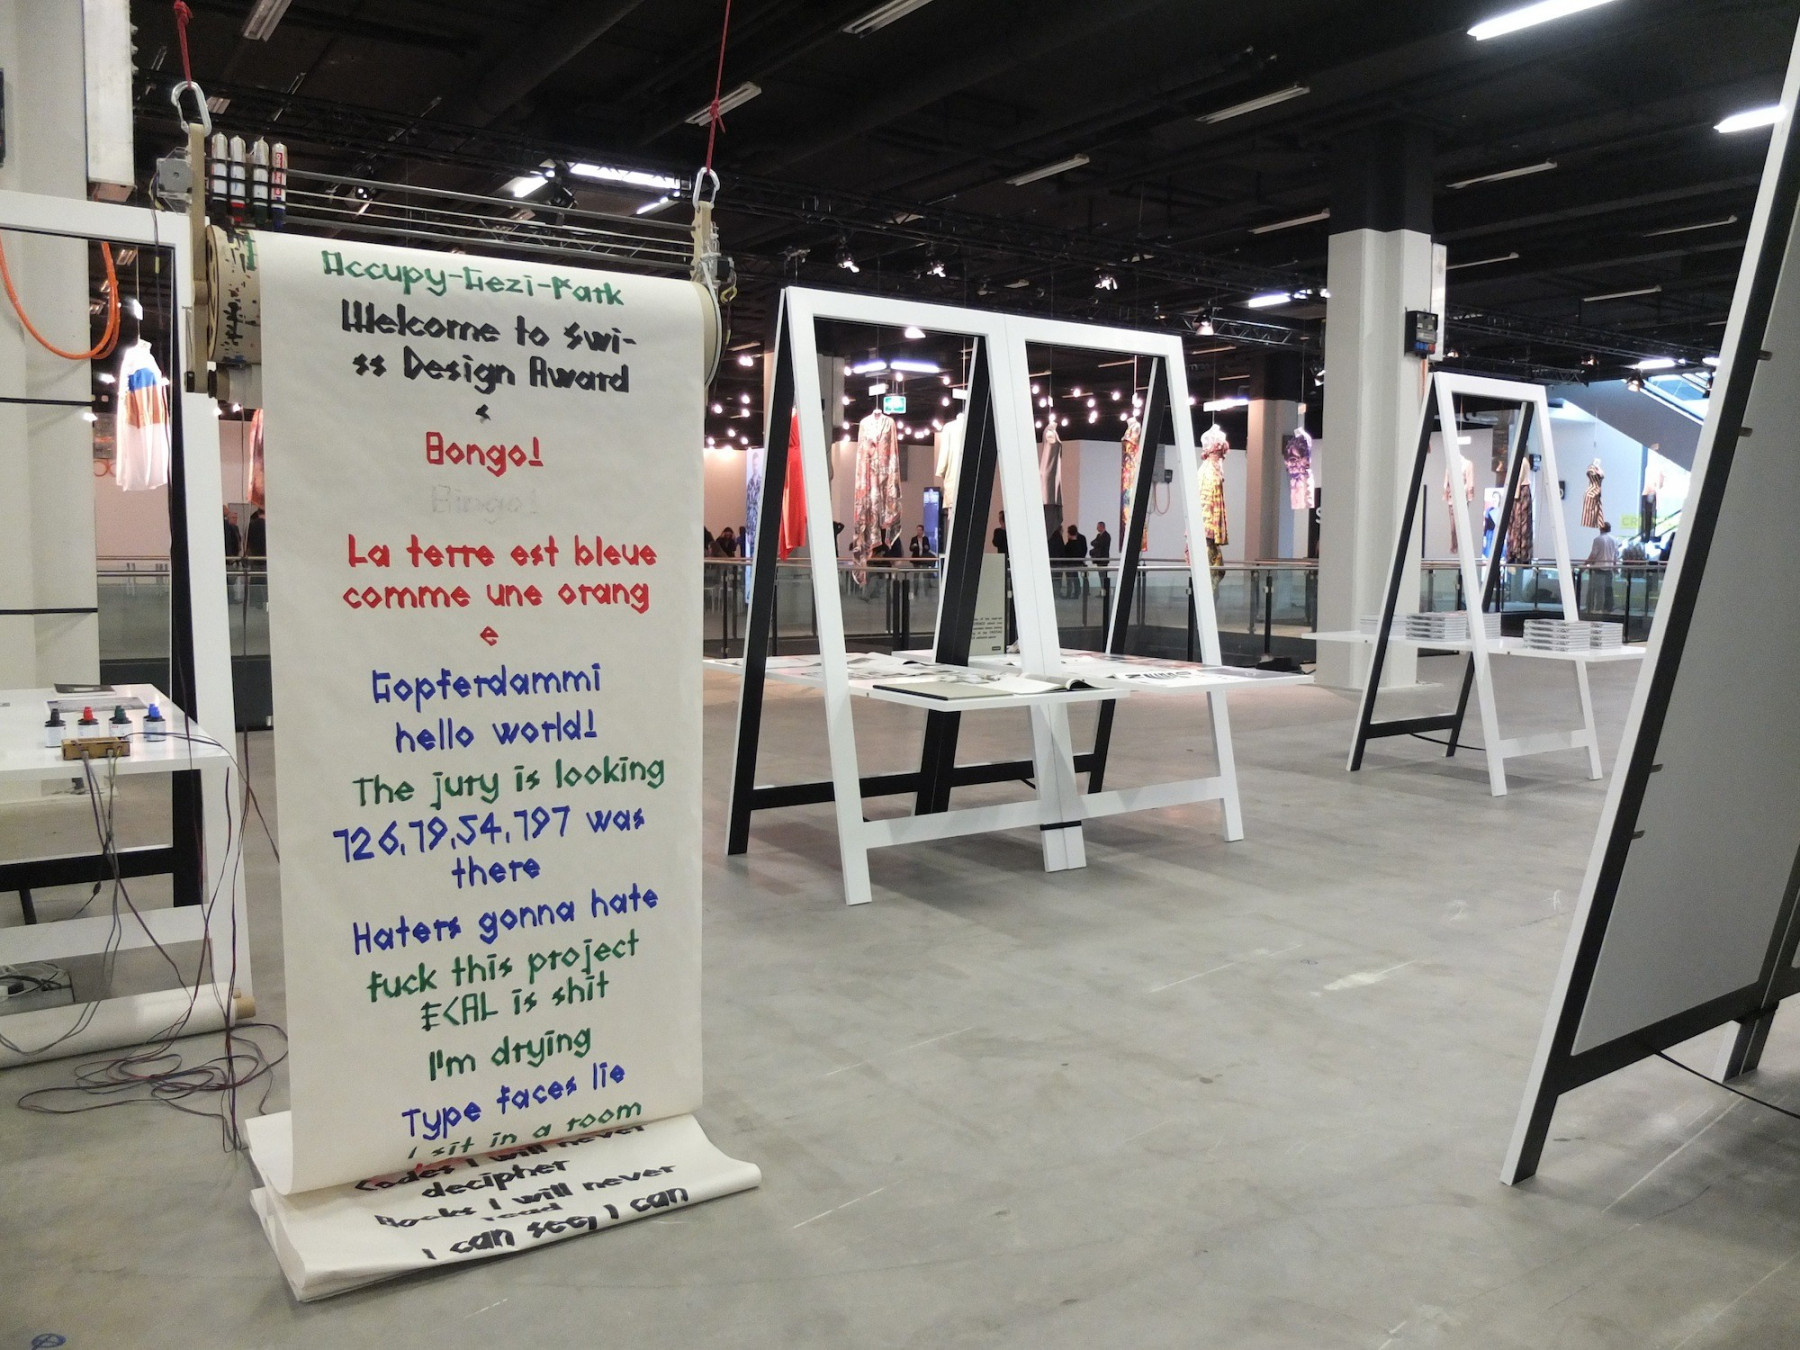 Occupy-Gezi-Park
Welcome to Swi-
ss Design Award
Bongo!
Bingo!
La terre est bleue
comme une orang
e
Gopferdammi
hello world!
The jury is looking
726,79,54,797 was
there
Haters gonna hate
fuck this project
ECAL is shit
I'm drying
Type faces lie
I sit in a room
Codes I will never
decipher
Books I will never
read
I can see, I can